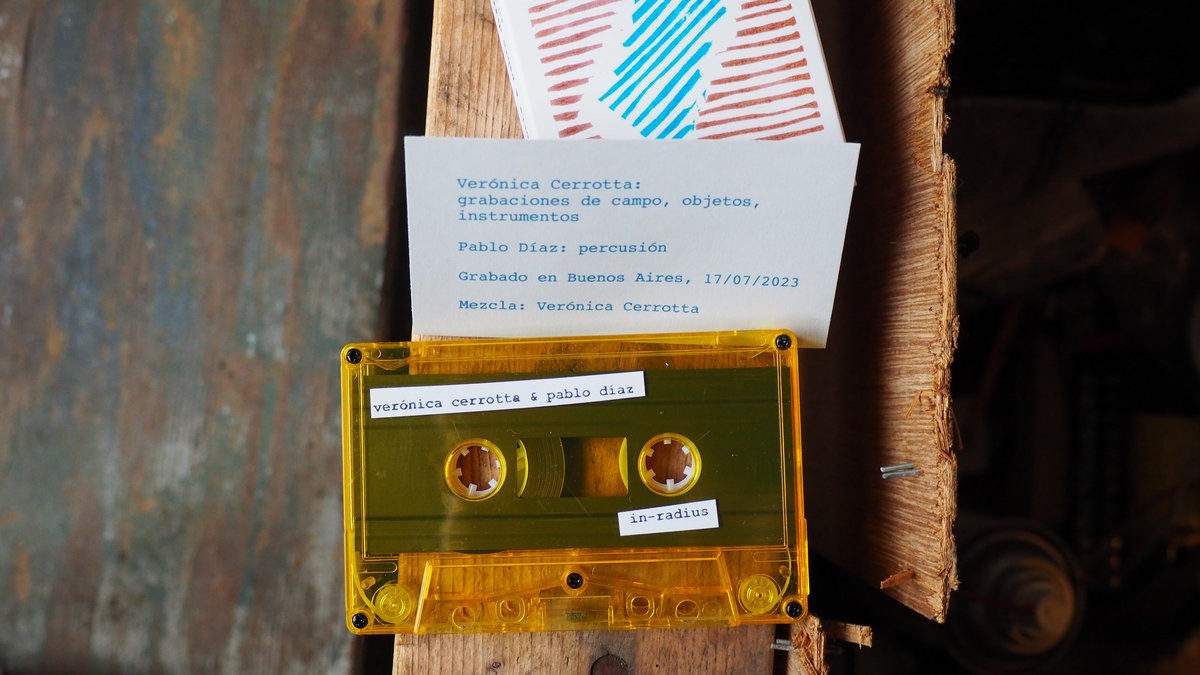 Verónica Cerrotta:
grabaciones de campo, objetos,
instrumentos
Pablo Díaz: percusión
Grabado en Buenos Aires, 17/07/2023
Mezcla: Verónica Cerrotta
verónica cerrotta & pablo díaz
in-radius